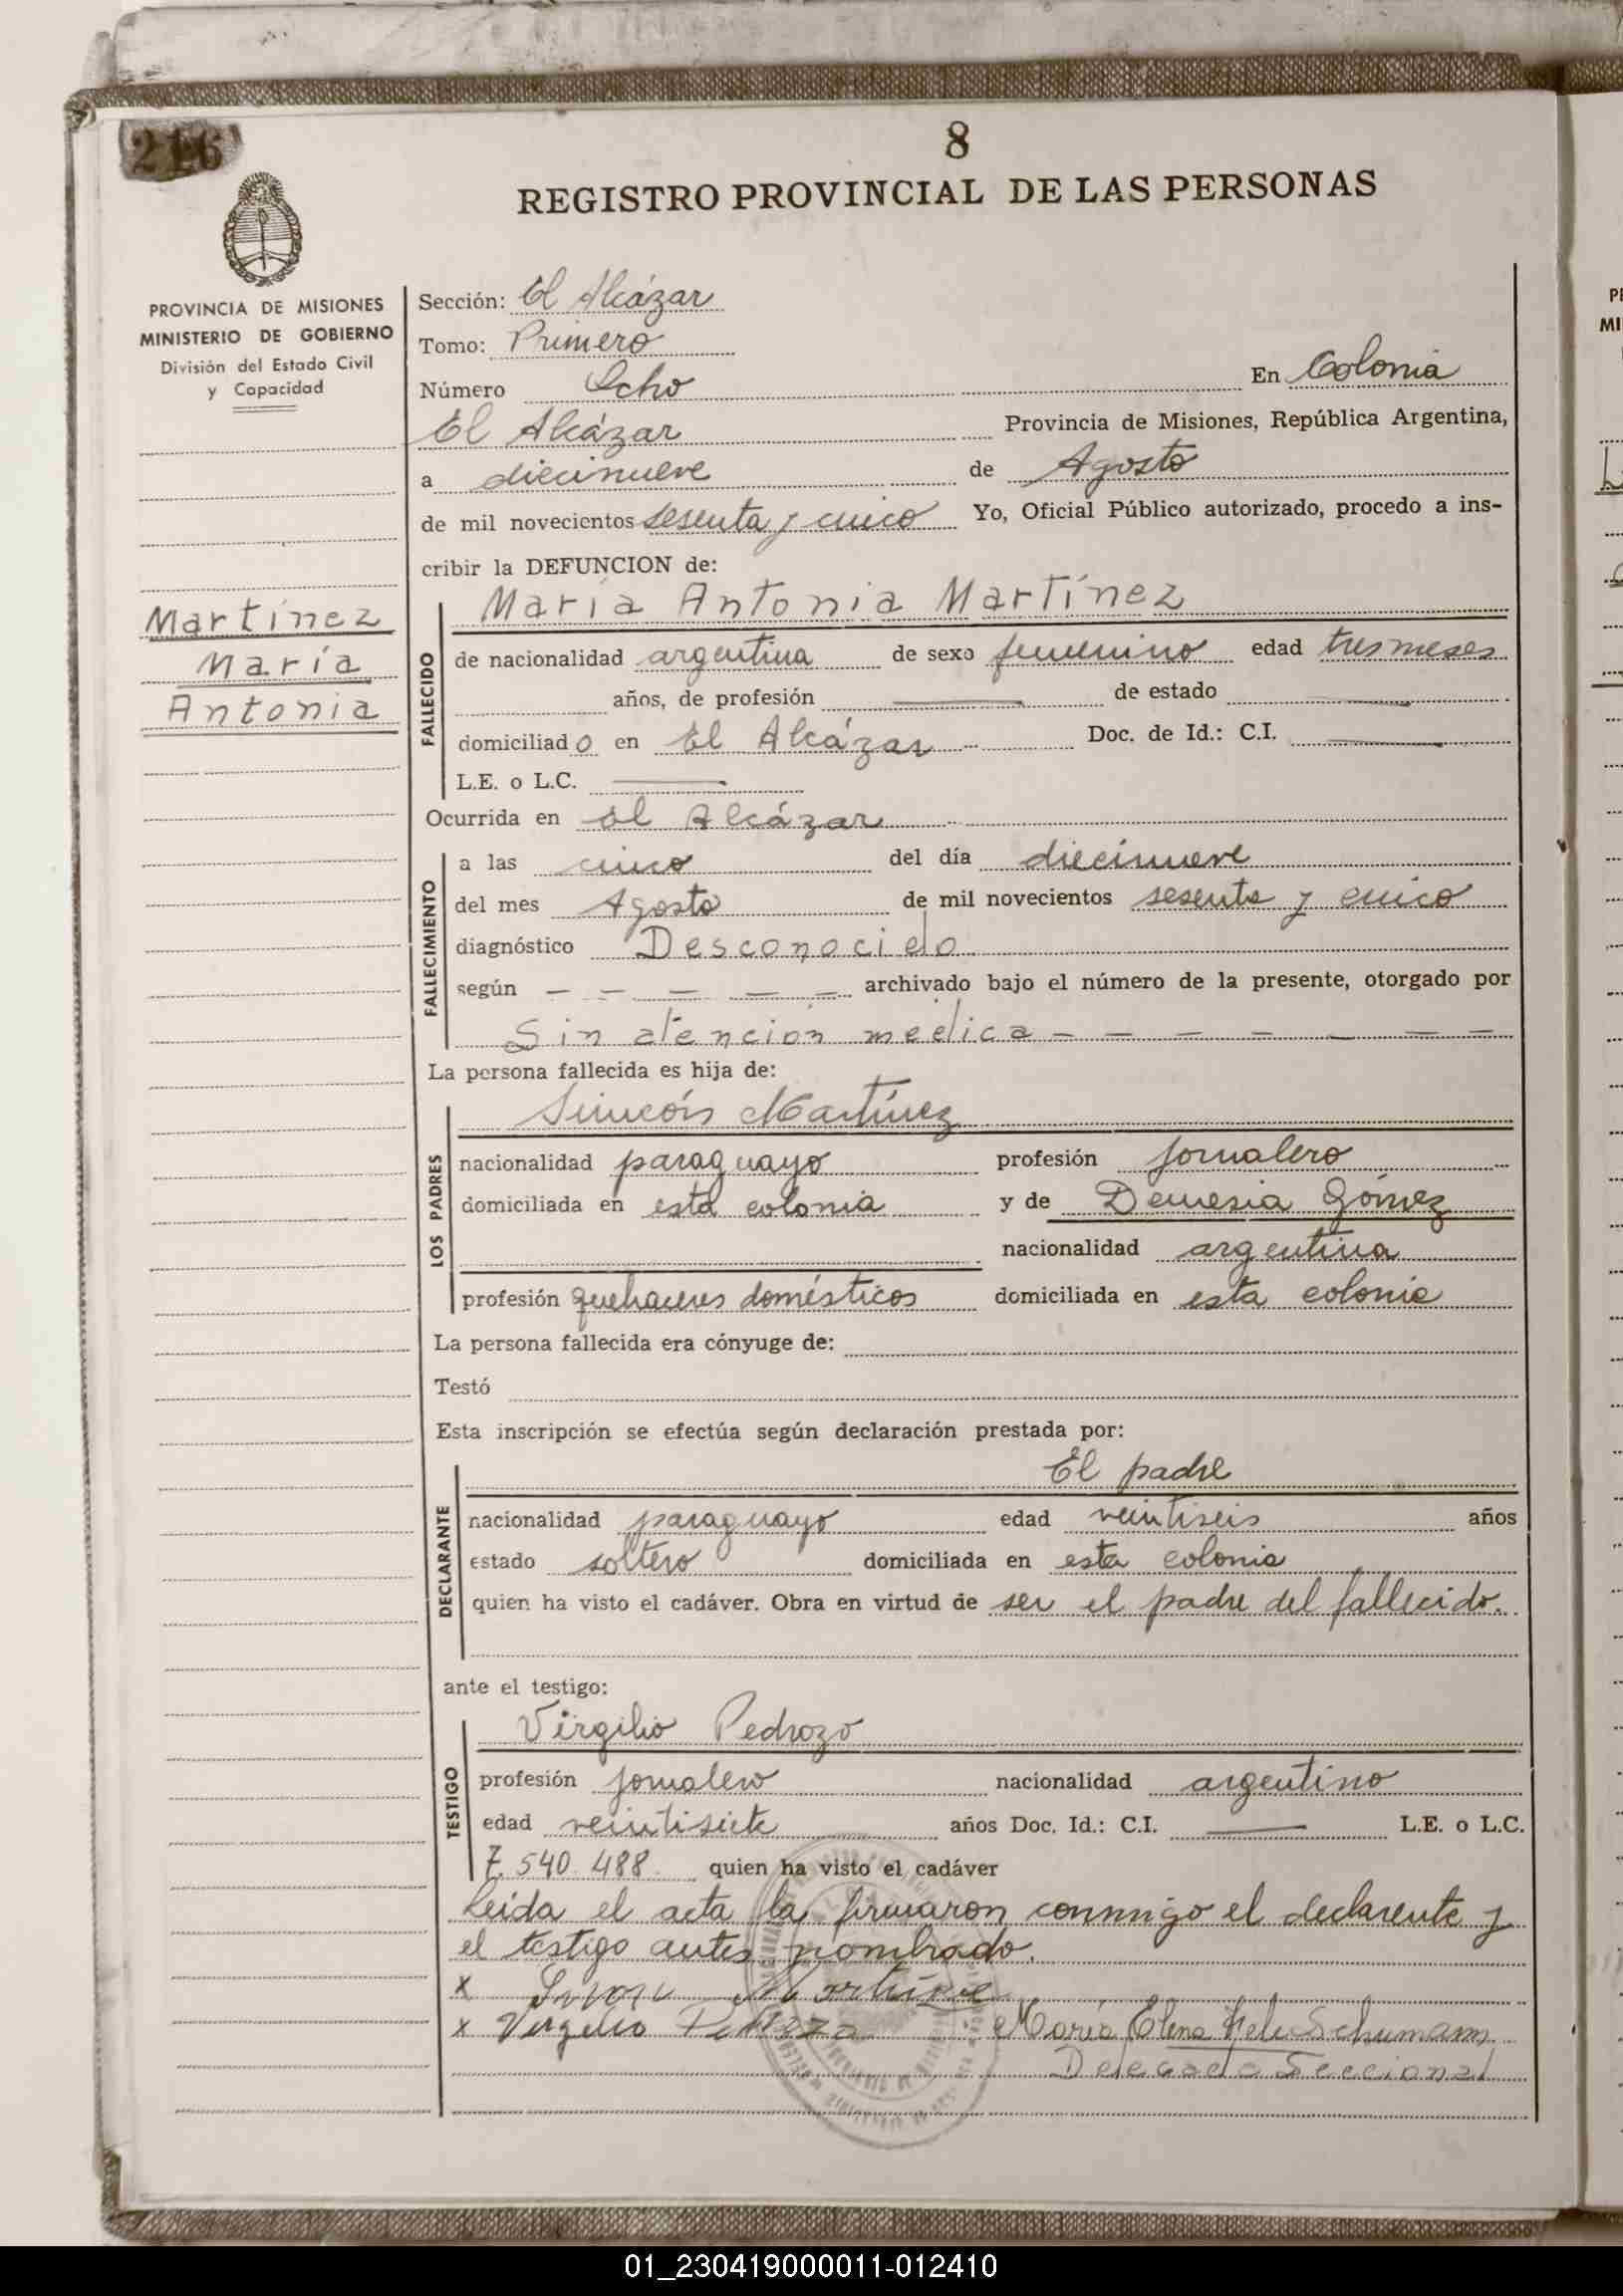 216
8
REGISTRO PROVINCIAL DE LAS PERSONAS
PROVINCIA DE MISIONES
MINISTERIO DE GOBIERNO
División del Estado Civil
y Capacidad
Martínez
María
Antonia
Sección: El Alcázar
Tomo: Primero
Número Ocho En Colonia
El Alcázar Provincia de Misiones, República Argentina,
a diecinueve de Agosto
de mil novecientos sesenta y cinco Yo, Oficial Público autorizado, procedo a ins-
cribir la DEFUNCION de:
FALLECIDO
María Antonia Martínez
de nacionalidad argentina de sexo femenino edad tres meses
años, de profesión — de estado —
domiciliado en El Alcázar Doc. de Id.: C.I. —
L.E. o L.C. —
Ocurrida en el Alcázar
FALLECIMIENTO
a las cinco del día diecinueve
del mes Agosto de mil novecientos sesenta y cinco
diagnóstico Desconocido
según — — — — — archivado bajo el número de la presente, otorgado por
Sin atención medica — — — — — — —
La persona fallecida es hija de:
LOS PADRES
Simeón Martínez
nacionalidad paraguayo profesión jornalero
domiciliada en esta colonia y de Demesia Gómez
nacionalidad argentina
profesión quehaceres domésticos domiciliada en esta colonia
La persona fallecida era cónyuge de:
Testó
Esta inscripción se efectúa según declaración prestada por:
DECLARANTE
El padre
nacionalidad paraguayo edad veintiseis años
estado soltero domiciliada en esta colonia
quien ha visto el cadáver. Obra en virtud de ser el padre del fallecido.
ante el testigo:
TESTIGO
Virgilio Pedrozo
profesión jornalero nacionalidad argentino
edad veintisiete años Doc. Id.: C.I. — L.E. o L.C.
7.540.488 quien ha visto el cadáver
Leída el acta la firmaron conmigo el declarente y
el testigo antes nombrado.
x Martínez
x Virgilio María Elena Schumann
Delegada Seccional
01_230419000011-012410